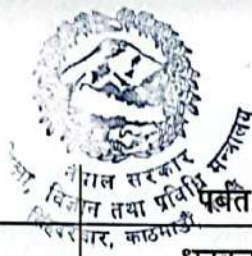 नेपाल सरकार
विज्ञान तथा प्रविधि मन्त्रालय
सिंहदरबार, काठमाडौं
पर्बत